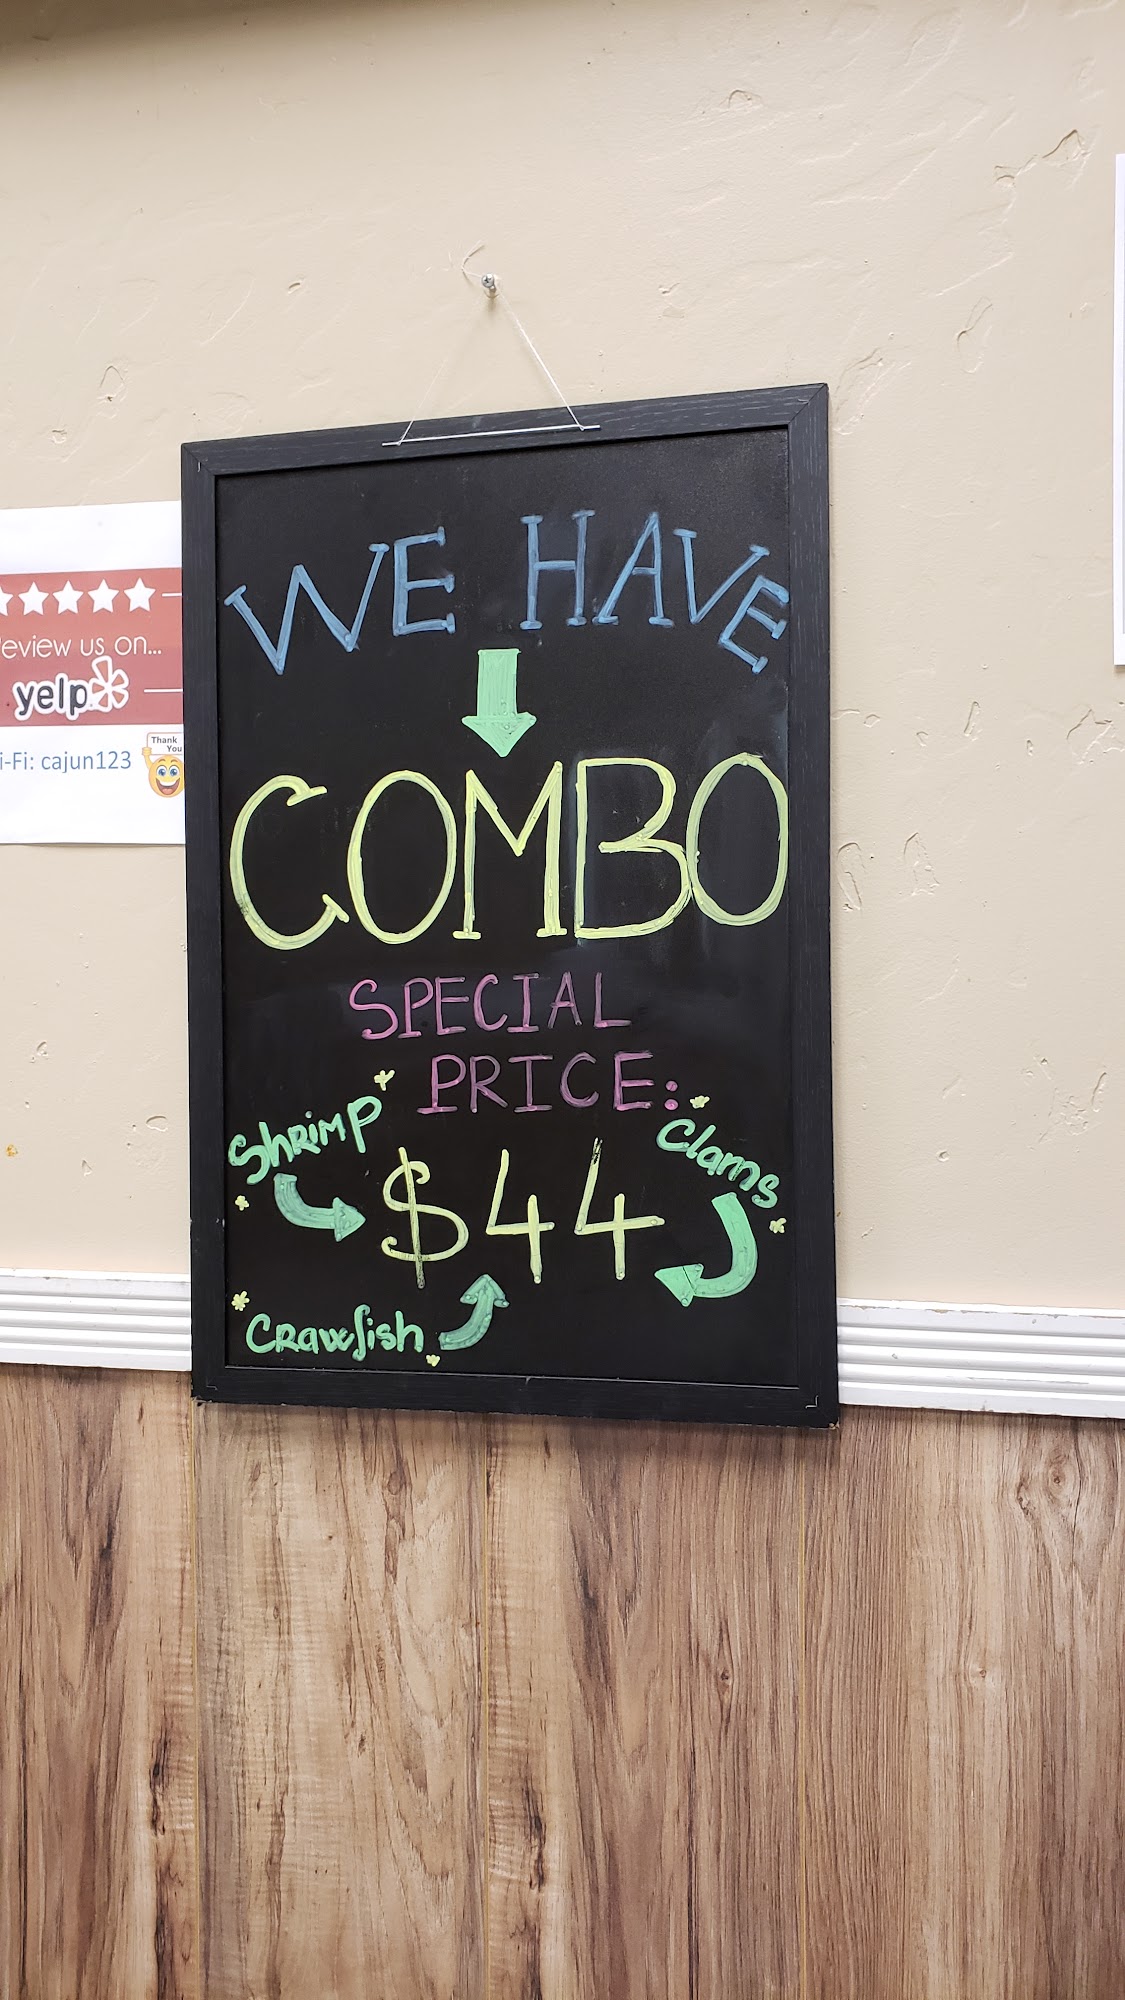 WE HAVE
COMBO
SPECIAL
PRICE:
Shrimp
Clams
$44
Crawfish
eview us on...
yelp
i-Fi: cajun123
Thank
You